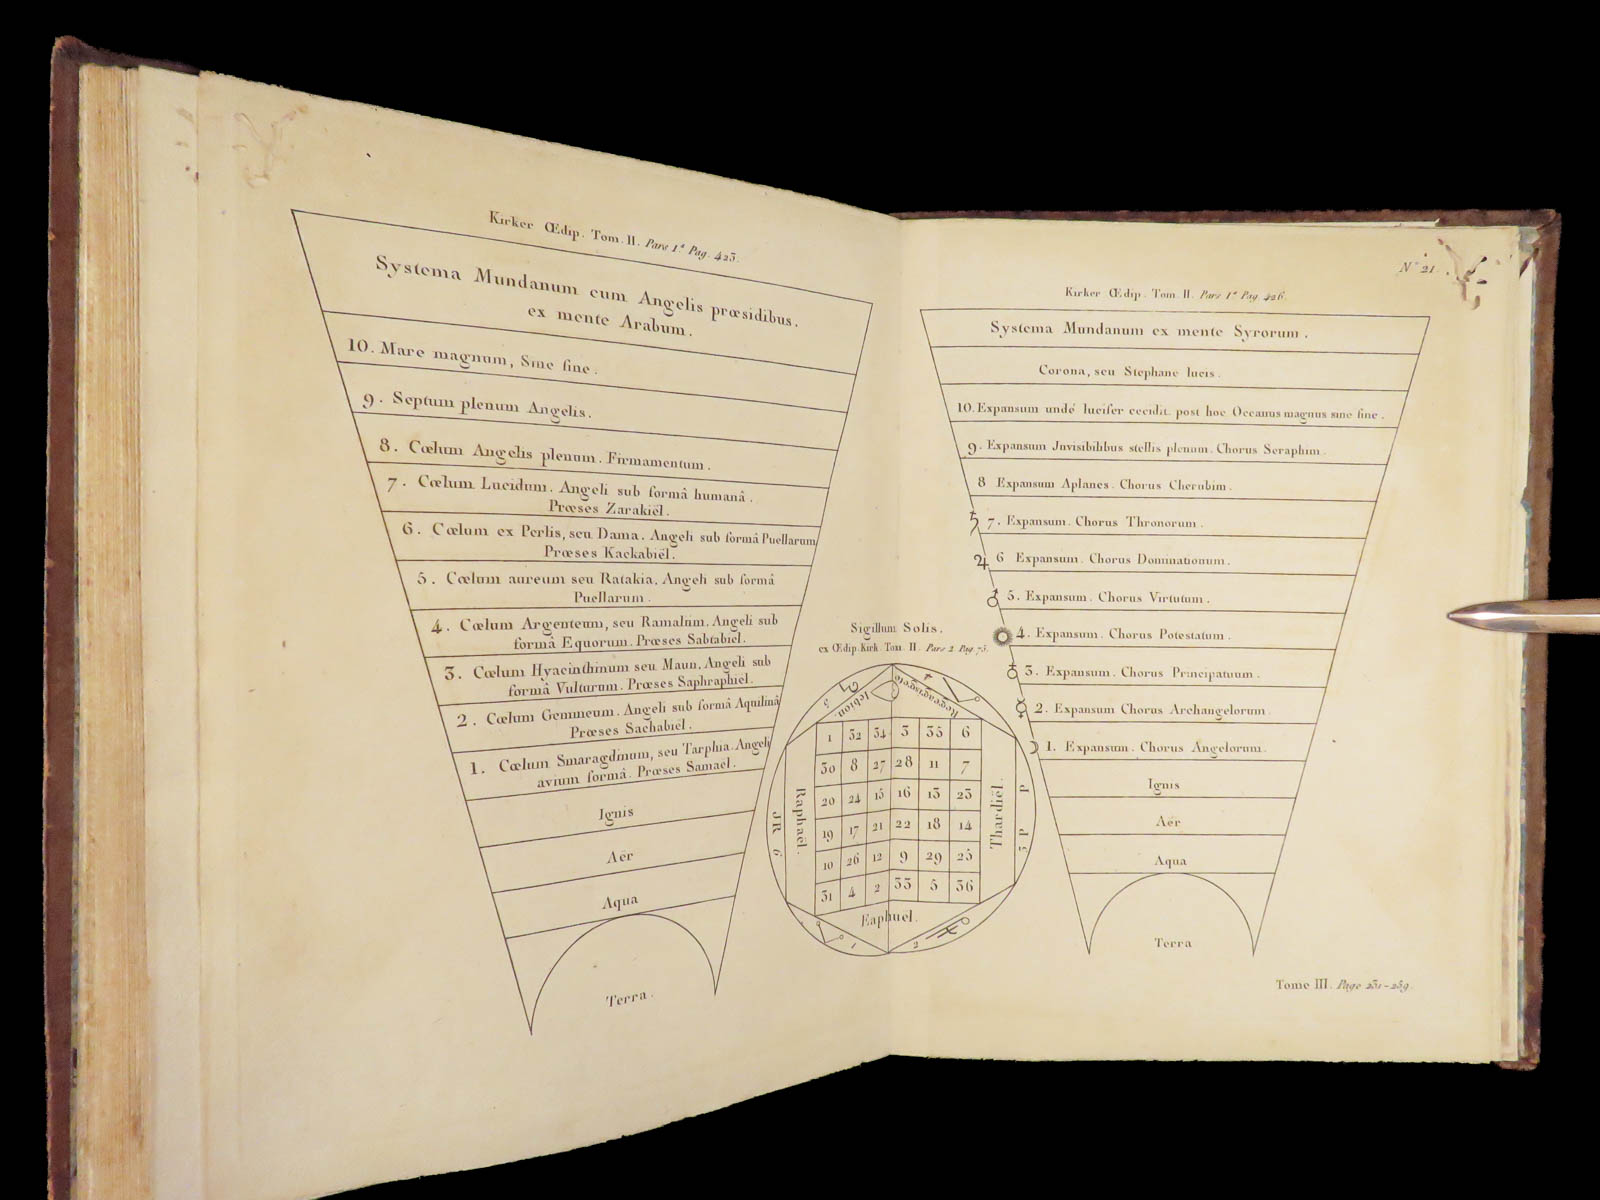 Kirker Œdip. Tom. II. Pars 1ª Pag. 423.
Systema Mundanum cum Angelis præsidibus.
ex mente Arabum.
10. Mare magnum, Sine fine.
9. Septum plenum Angelis.
8. Cœlum Angelis plenum. Firmamentum.
7. Cœlum Lucidum. Angeli sub formâ humanâ.
Præses Zarakiël.
6. Cœlum ex Perlis, seu Dama. Angeli sub formâ Puellarum
Præses Kackabiël.
5. Cœlum aureum seu Ratakia. Angeli sub formâ
Puellarum.
4. Cœlum Argenteum, seu Ramalum. Angeli sub
formâ Equorum. Præses Sabtabiel.
3. Cœlum Hyacinthinum seu Maun. Angeli sub
formâ Vulturum. Præses Saphraphiel.
2. Cœlum Gemmeum. Angeli sub formâ Aquilinâ
Præses Sachabiël.
1. Cœlum Smaragdinum, seu Tarphia. Angeli
avium formâ. Præses Samaël.
Ignis
Aër
Aqua
Terra.
Sigillum Solis.
ex Œdip. Kirk. Tom. II. Pars 2. Pag. 75.
3
4
Iebion.
1 32 34 3 35 6
30 8 27 28 11 7
20 24 15 16 13 23
19 17 21 22 18 14
10 26 12 9 29 25
31 4 2 33 5 36
Raphaël.
Thardiël.
JR 6
5 P P
Eaphuël.
1
2
Nº 21.
Kirker Œdip. Tom. II. Pars 1ª Pag. 426.
Systema Mundanum ex mente Syrorum.
Corona, seu Stephane lucis.
10. Expansum undé lucifer cecidit. post hoc Occanus magnus sine fine.
9. Expansum Jnvisibilibus stellis plenum. Chorus Seraphim.
8 Expansum Aplanes. Chorus Cherubim.
♄ 7. Expansum. Chorus Thronorum.
♃ 6 Expansum. Chorus Dominationum.
♂ 5. Expansum. Chorus Virtutum.
4. Expansum. Chorus Potestatum.
♀ 3. Expansum. Chorus Principatuum.
☿ 2. Expansum Chorus Archangelorum.
☽ 1. Expansum. Chorus Angelorum.
Ignis
Aër
Aqua
Terra
Tome III. Page 231-259.